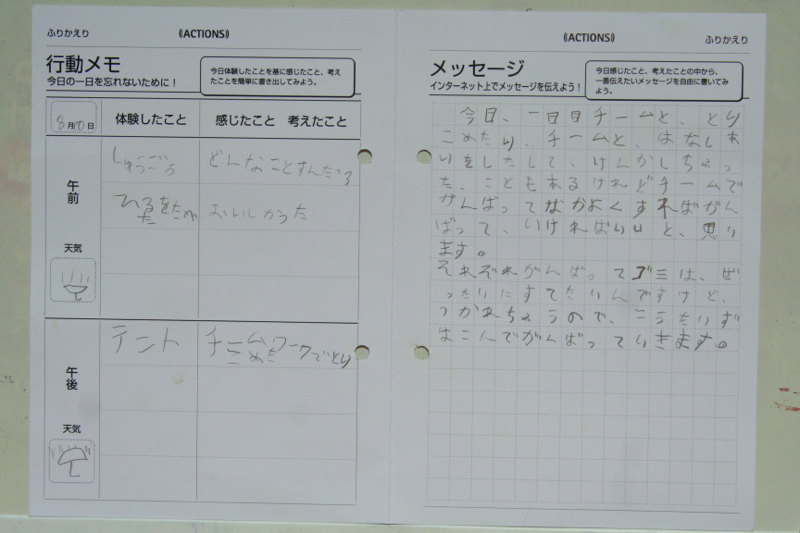 ふりかえり
《ACTIONS》
行動メモ
今日の一日を忘れないために！
今日体験したことを基に感じたこと、考え
たことを簡単に書き出してみよう。
8月10日
体験したこと
感じたこと 考えたこと
午前
しゅうごう
どんなことすんだろ
ひるをたべた
おいしかった
天気
午後
テント
チームワークでとり
こめた
天気
《ACTIONS》
ふりかえり
メッセージ
インターネット上でメッセージを伝えよう！
今日感じたこと、考えたことの中から、
一番伝えたいメッセージを自由に書いてみ
よう。
今日、一日目チームと、とり
こめたり、チームと、はなしあ
いをしたして、けんかしちゃっ
た、こともあるけれどチームで
がんばってなかよくすればがん
ばって、いければいいと、思い
ます。
それぞれがんばってゴミは、ぜ
ったいにすてたいんですけど、
つかれちゃうので、こうたいず
はこんでがんばっていきます。